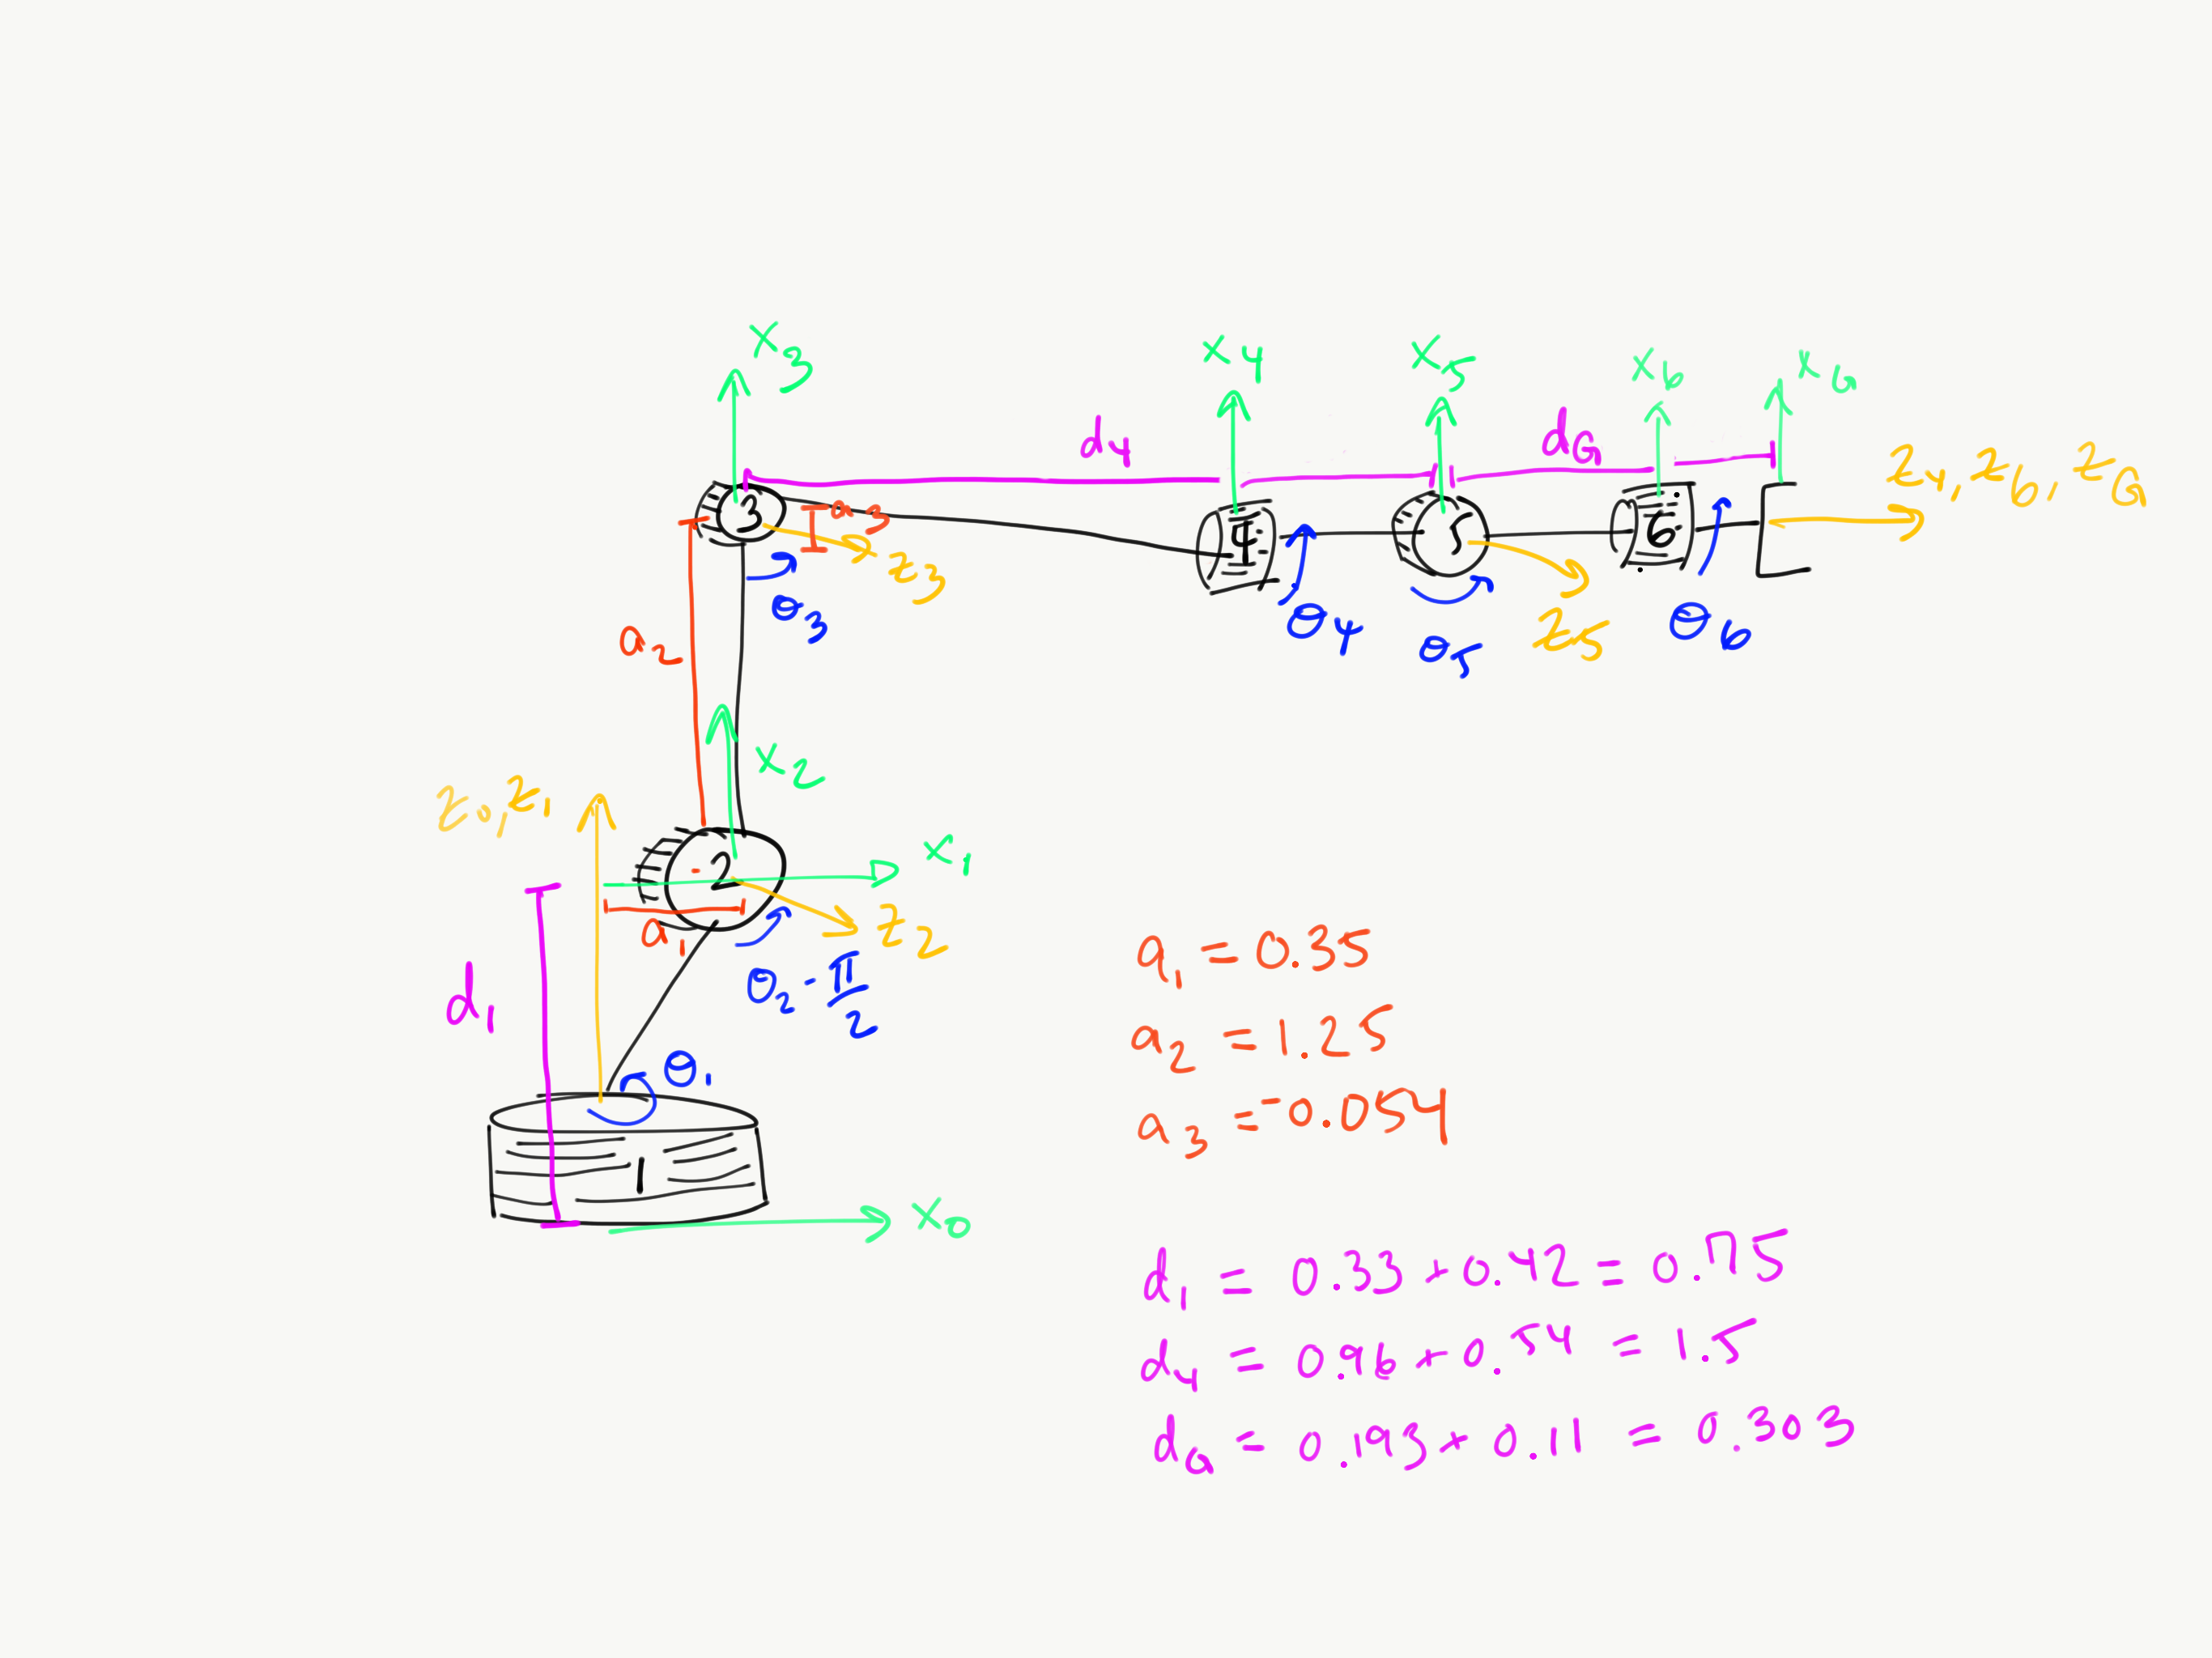 x₃
x₄
x₅
x₆
x_G
d₄
d_G
z₄, z₆, z_G
3
a₃
4
5
6
z₃
θ₃
θ₄
θ₅
z₅
θ₆
a₂
x₂
z₀, z₁
2
x₁
a₁
z₂
d₁
θ₂ - π/2
θ₁
1
x₀
a₁ = 0.35
a₂ = 1.25
a₃ = -0.054
d₁ = 0.33 + 0.42 = 0.75
d₄ = 0.96 + 0.54 = 1.5
d_G = 0.193 + 0.11 = 0.303